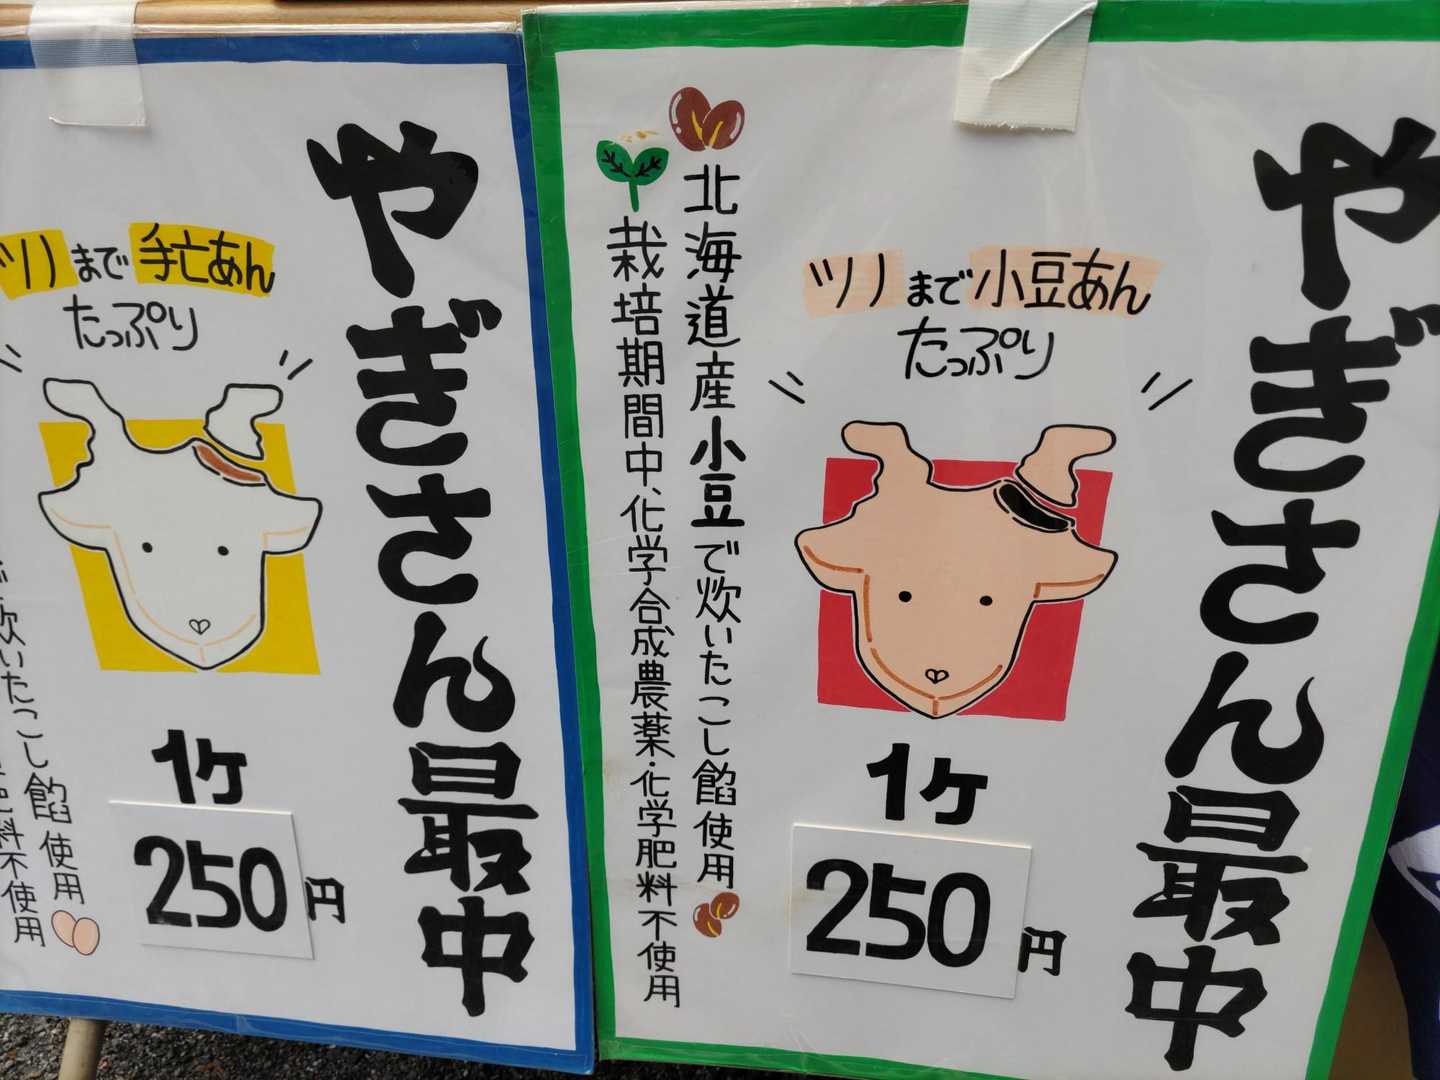 やぎさん最中
ツノまで手亡あん
たっぷり
1ヶ
250円
で炊いたこし餡使用
料不使用
やぎさん最中
ツノまで小豆あん
たっぷり
1ヶ
250円
北海道産小豆で炊いたこし餡使用
栽培期間中、化学合成農薬・化学肥料不使用